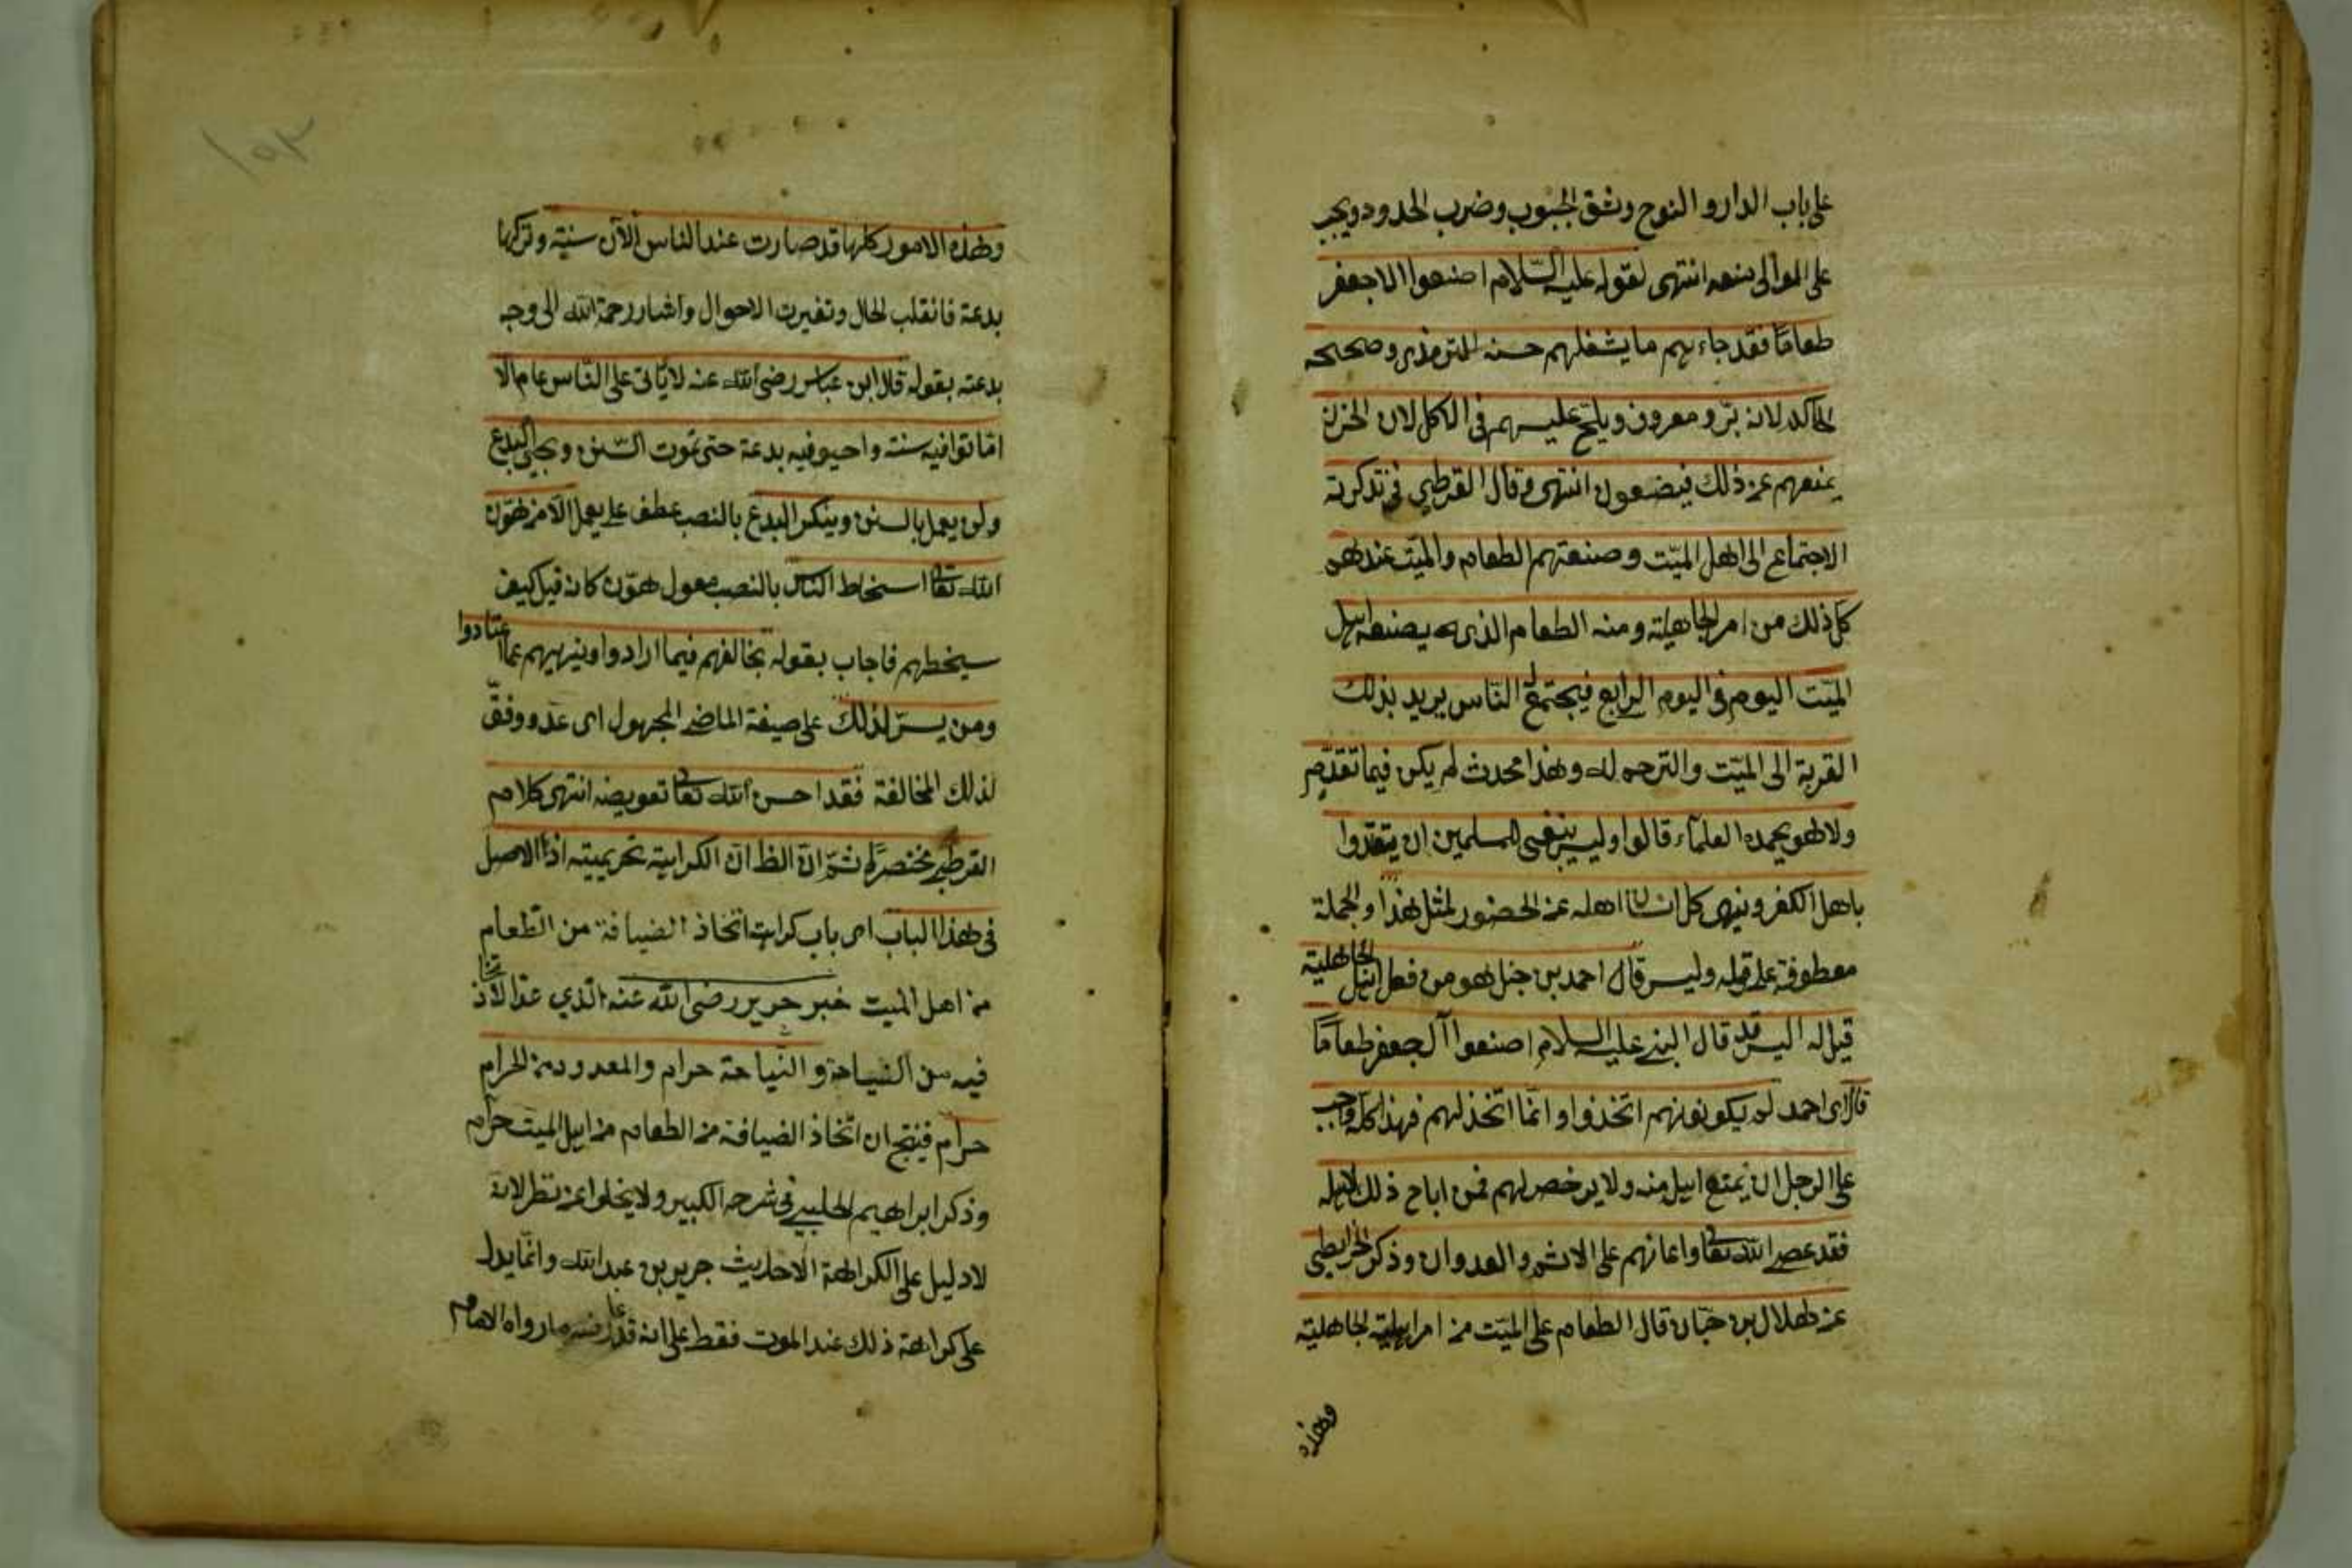 على باب الدار والنوح وشق الجيوب وضرب الخدود ويجب
على الموالى منعه انتهى لقوله عليه السلام اصنعوا الاجعفر
طعاما فقد جاءهم ما يشغلهم حسنه الترمذى وصححه
الحاكم لانه بر ومعروف ويلح عليهم فى الاكل لان الحزن
يمنعهم عن ذلك فيضعون انتهى وقال القرطبي فى تذكرته
الاجتماع الى اهل الميت وصنعتهم الطعام والميت عندهم
كل ذلك من امر الجاهلية ومنه الطعام الذى يصنعه اهل
الميت اليوم فى اليوم الرابع فيجتمع الناس يريد بذلك
القربة الى الميت والترحم له وهذا محدث لم يكن فيما تقدم
ولا هو يحمده العلماء قالوا وليس ينبغى للمسلمين ان يقتدوا
باهل الكفر وينهى كل انسان اهله عن الحضور لمثل هذا والجملة
معطوفة على قوله وليس قال احمد بن حنبل هو من فعل اهل الجاهلية
قيل له اليس قد قال النبى عليه السلام اصنعوا آل جعفر طعاما
قال اى احمد لم يكونوا هم اتخذوا وانما اتخذ لهم فهذا كله واجب
على الرجل ان يمنع اهله منه ولا يرخص لهم فمن اباح ذلك لاهله
فقد عصى الله تعالى واعانهم على الاثم والعدوان وذكر الخرايطى
عن هلال بن حبان قال الطعام على الميت من امر الجاهلية
وهذه
١٥٣
وهذه الامور كلها قد صارت عند الناس الآن سنية وتركها
بدعة فانقلب الحال وتغيرت الاحوال واشار رحمة الله الى وجه
بدعته بقوله قال ابن عباس رضى الله عنه لا يأتى على الناس عام الا
اماتوا فيه سنة واحيو فيه بدعة حتى تموت السنن ويحيى البدع
ولن يعمل بالسنن وينكر البدع بالنصب عطف على يعمل الا من هون
الله تعالى اسخاط الناس بالنصب معول هون كانه قيل كيف
سيخطهم فاجاب بقوله بخالفهم فيما ارادوا وينهيهم عما اعتادوا
ومن يسر لذلك على صيغة الماضى المجهول اى عد ووفق
لذلك المخالفة فقد احسن الله تعالى تعويضه انتهى كلام
القرطبى مختصرا ثم ان الظ ان الكراهية تحريمية اذ الاصل
فى هذا الباب اى باب كراهت اتخاذ الضيافة من الطعام
من اهل الميت خبر جرير رضى الله عنه الذي عد الاتخاذ
فيه من النياحة والنياحة حرام والمعدود من الحرام
حرام فينتج ان اتخاذ الضيافة من الطعام من اهل الميت حرام
وذكر ابراهيم الحلبى فى شرحه الكبير ولا يخلوا عن نظر لانه
لا دليل على الكراهة الا حديث جرير بن عبد الله وانما يدل
على كراهة ذلك عند الموت فقط على انه قد عارضه ما رواه الامام